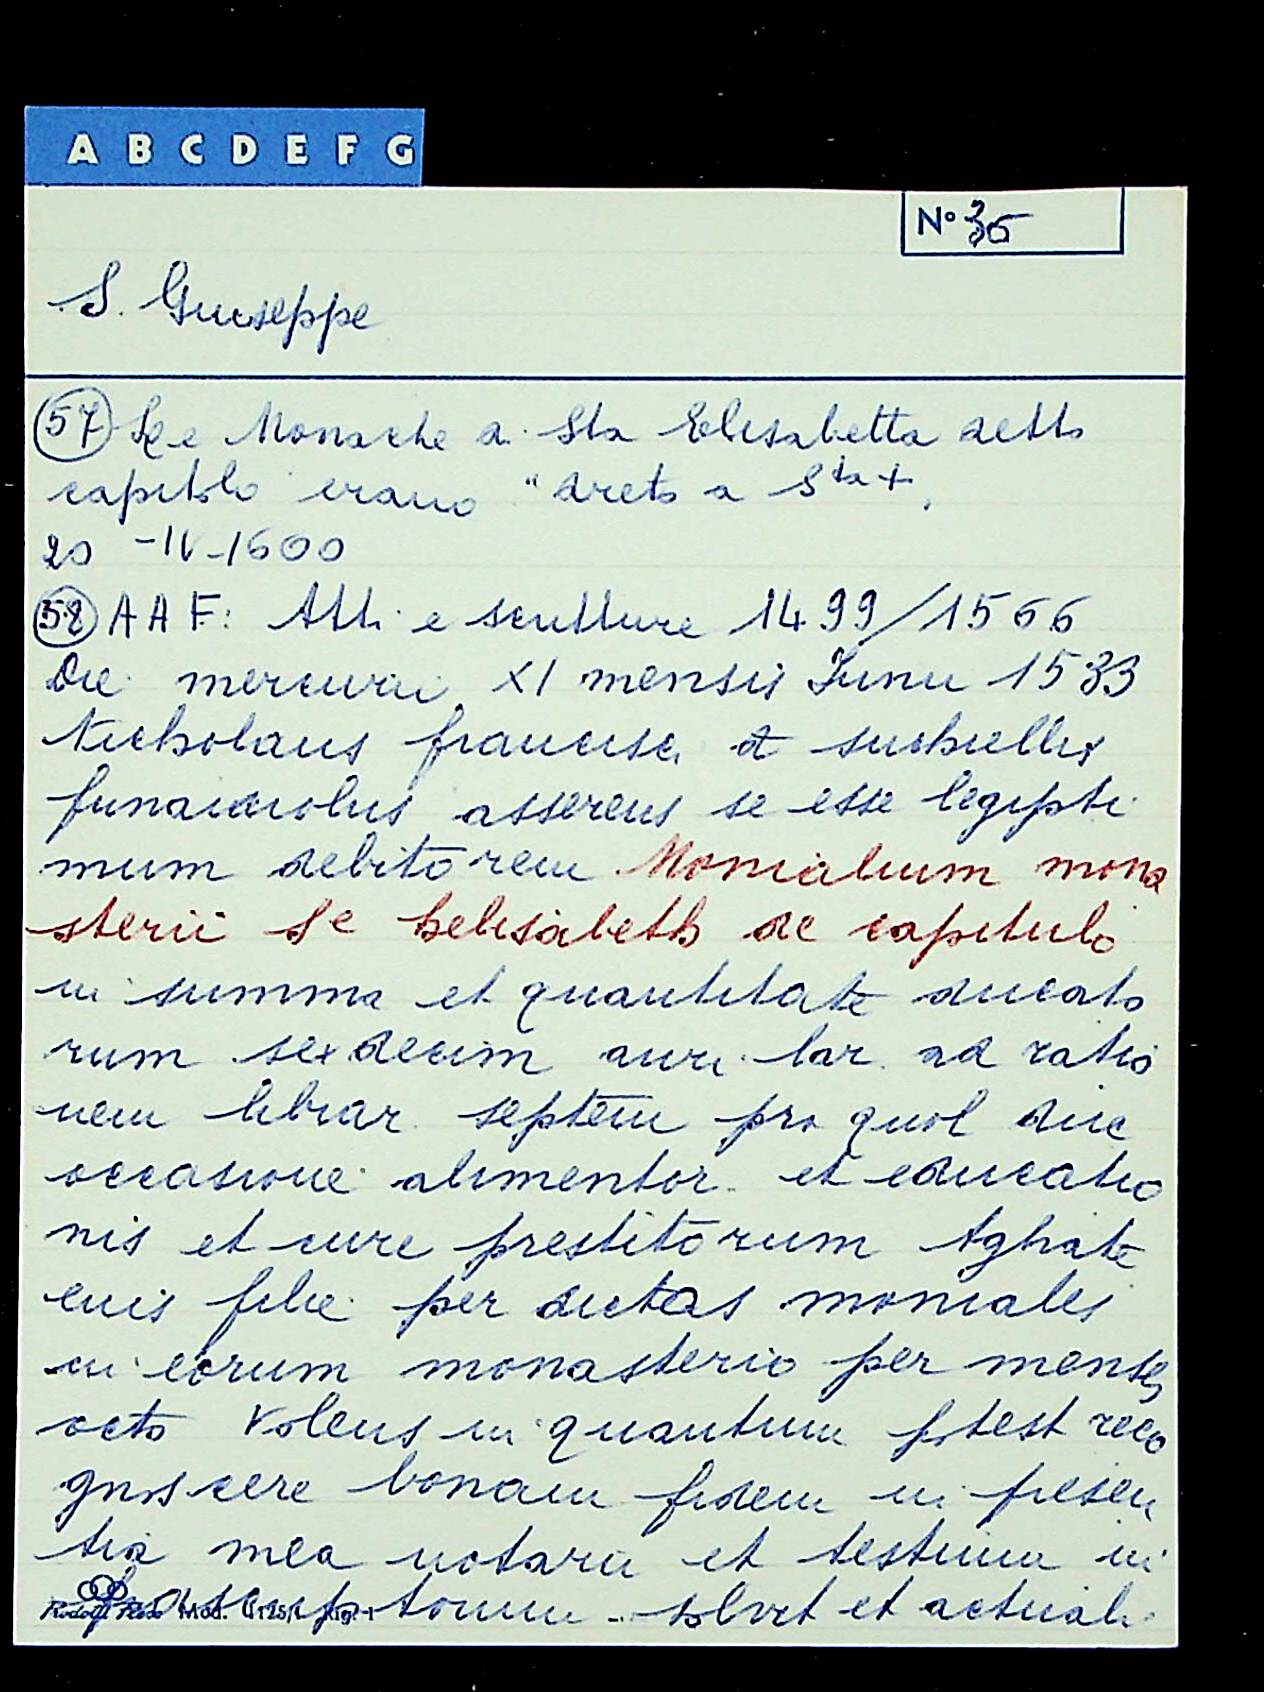 A B C D E F G
N° 36
S. Giuseppe
57 Le Monache di Sta Elisabetta detto
capitolo erano "dreto a Sta +
20 -IV-1600
58 AAF: Atti e scritture 1499/1566
Die mercurii XI mensis Junii 1533
Nicholaus francisci
funaiolus asserens se esse legipti
mum debitorem Monialium mona
sterii Se helisabeth de capitulo
in summa et quantitate ducato
rum sexdecim auri lar. ad ratio
nem librar. septem pro quol duc
occasione alimentor. et educatio
nis et cure prestitorum Aghate
eius filie per dictas moniales
in eorum monasterio per menses
octo volens in quantum potest reco
gnoscere bonam fidem in presen
tia mea notarii et testium in
solvet et actuali